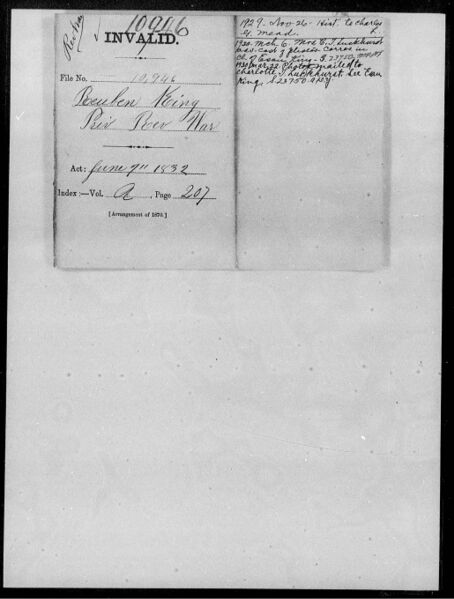 Rev War
10906
INVALID.
File No. 10,906
Reuben King
Priv Rev War
Act: June 7th 1832
Index:—Vol. A, Page 207
[Arrangement of 1870.]
1929. Nov 26 - Hist. to Charles
G. Mead.
1930. Mch 6. Mrs C. I. Luckhurst
adv. cost of photos Corres in
Cl. of Evan King - S. 23750
1930 Mar. 22 Photos mailed to
Charlotte I. Luckhurst See Evan
King, S 23750